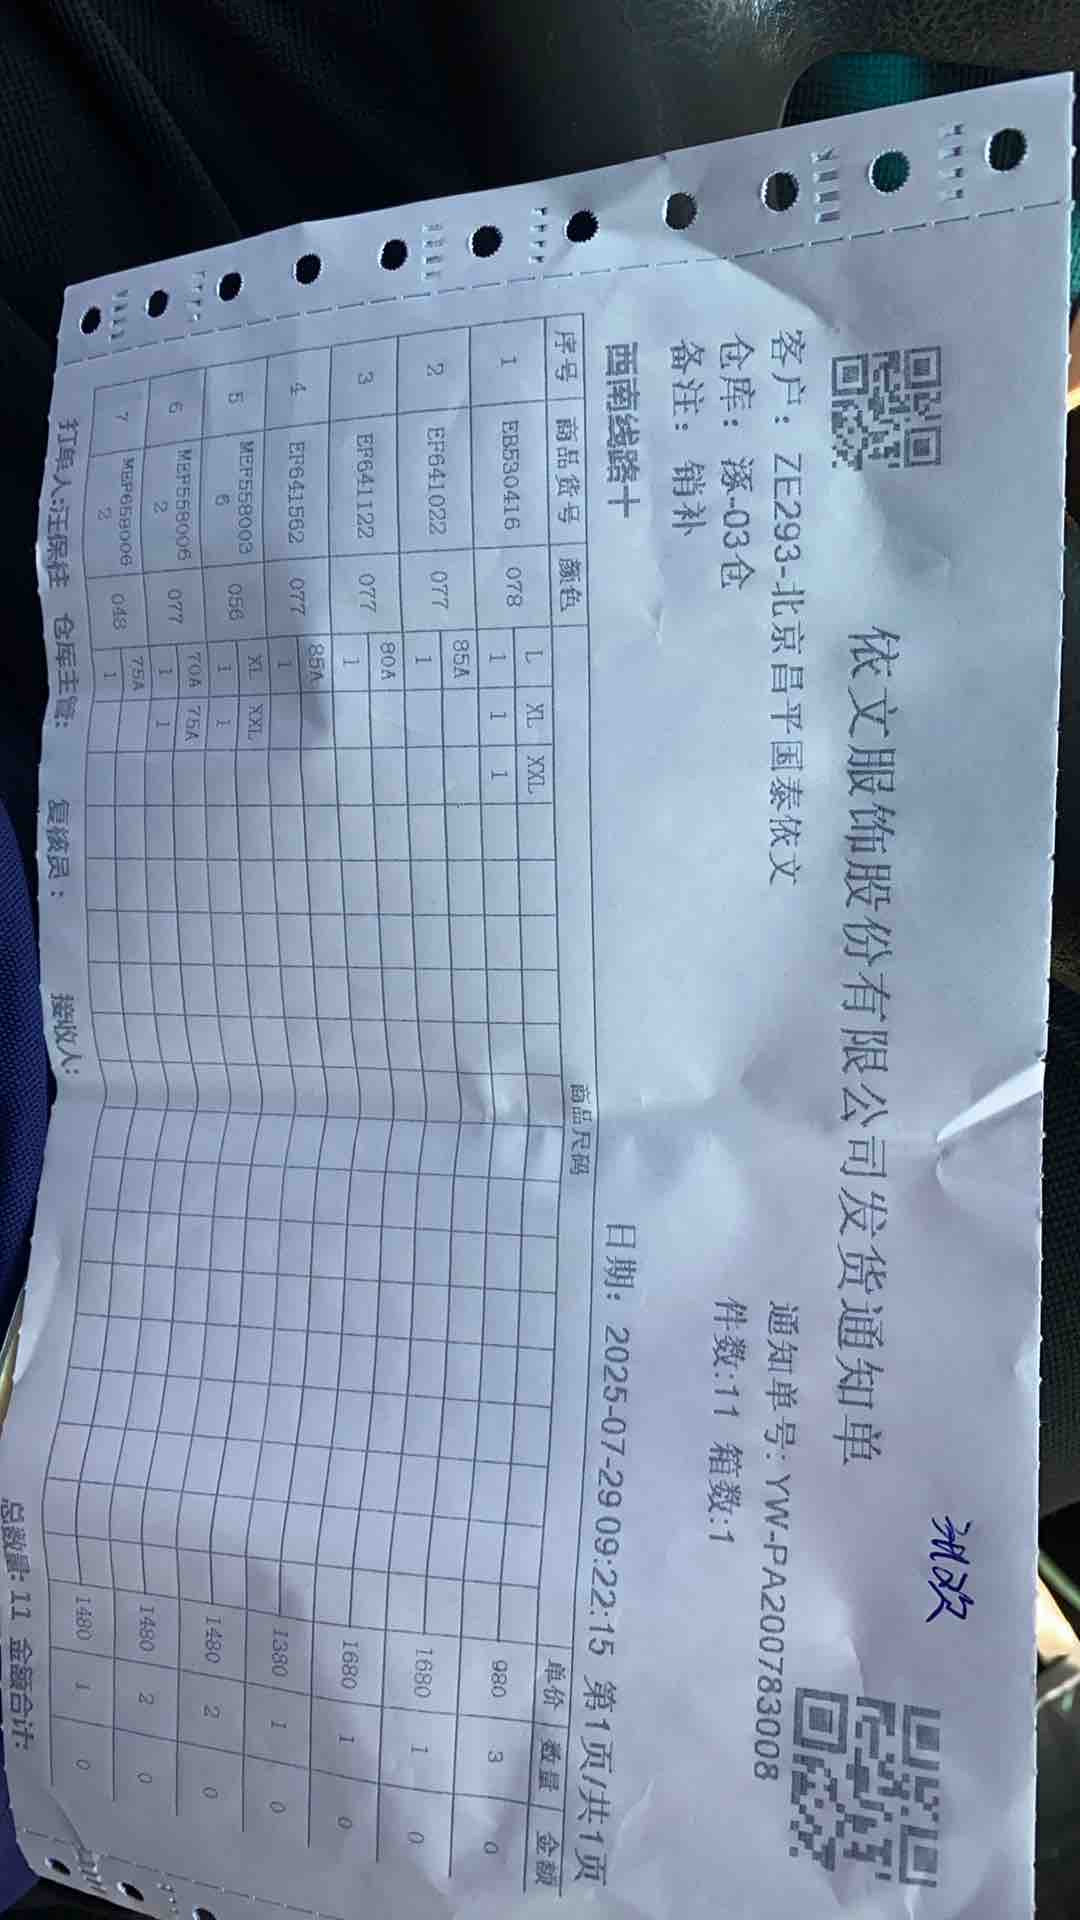 依文服饰股份有限公司发货通知单
客户：ZE293-北京昌平国泰依文
通知单号: YW-PA200783008
仓库：涿-03仓
件数:11 箱数:1
备注：销补
西南线路十
日期：2025-07-29 09:22:15 第1页/共1页
序号 商品货号 颜色 商品尺码 单价 数量 金额
L XL XXL
1 EB530416 078 1 1 1 980 3 0
85A
2 EF641022 077 1 1680 1 0
80A
3 EF641122 077 1 1680 1 0
85A
4 EF641562 077 1 1380 1 0
XL XXL
5 MEF5580036 056 1 1 1480 2 0
70A 75A
6 MEF5580062 077 1 1 1480 2 0
75A
7 MEF6580062 048 1 1480 1 0
打单人:汪保柱 仓库主管: 复核员: 接收人: 总数量: 11 金额合计: